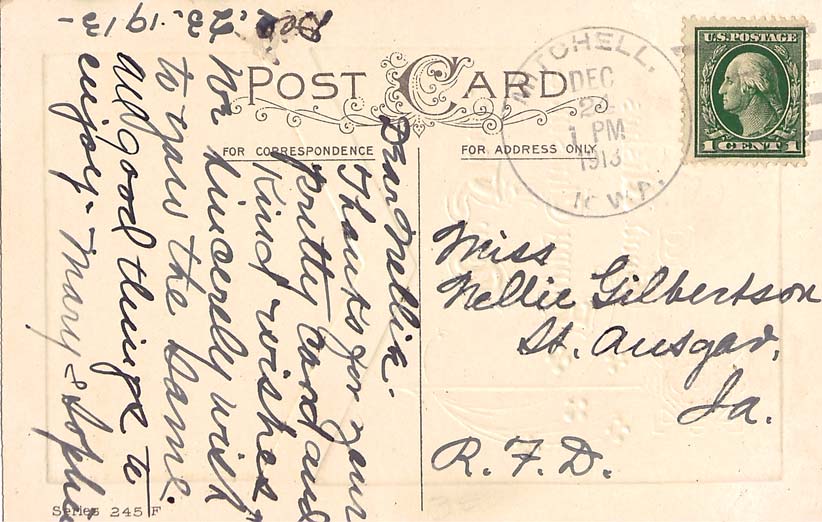 POST CARD
FOR CORRESPONDENCE
FOR ADDRESS ONLY
U.S. POSTAGE
1 CENT 1
MITCHELL,
DEC
1 PM
1913
Dec. 23. 1913-
Dear Nellie.
Thanks for your
pretty card and
Kind wishes
We sincerely wish
to you the same.
All good things to
enjoy- Mary & Sophi
Miss
Nellie Gilbertson
St. Ansgar,
Ia.
R. F. D.
Series 245 F